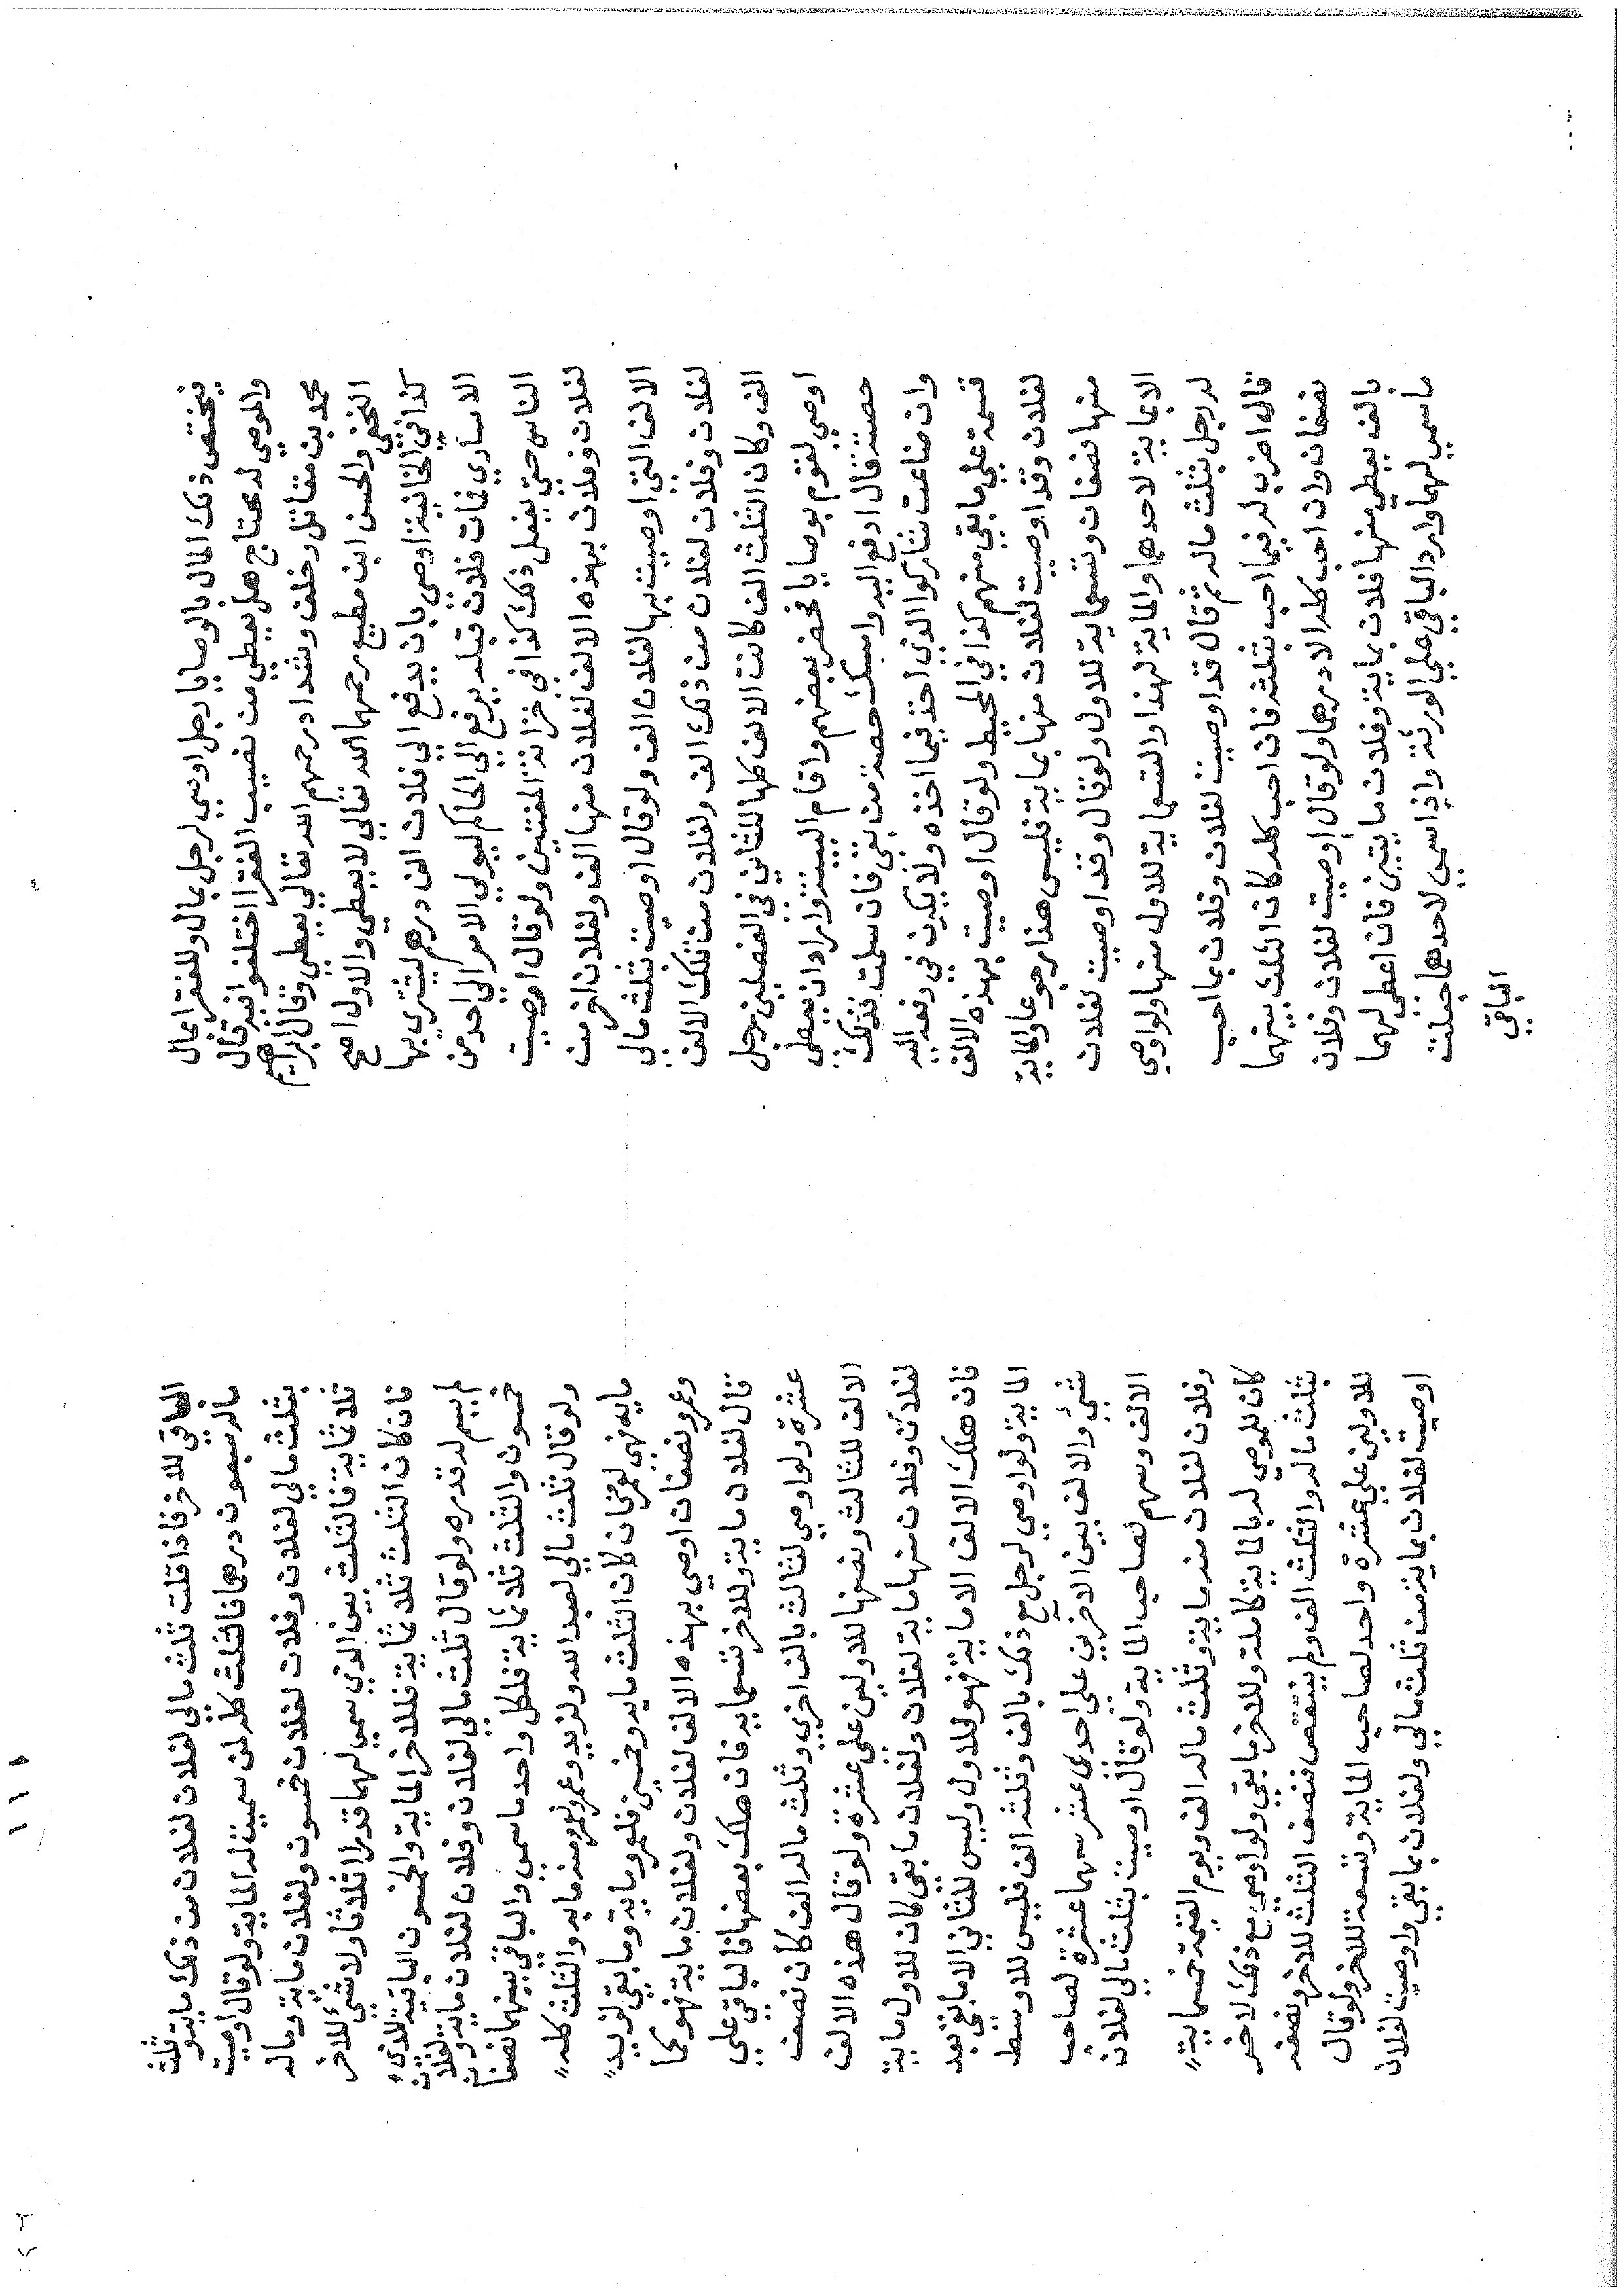 فيختص ذلك المال بالوصايا رجل اوصي لرجل بمال وللفقرا بمال
والموصي له محتاج هل يعطي من نصيب الفقرا اختلفوا فيه قال
محمد بن مقاتل وخلف وشداد رحمهم الله تعالي يعطي وقال ابراهيم
النخعي والحسن ابن مطيع رحمهما الله تعالي لا يعطي والاول اصح
كذا في الخانية اوصي بان يدفع الي فلان الف درهم ليشتري بها
الاساري فمات فلان قبله يرفع الي الحاكم ليولي الامر الي احد من
الناس حتي يفعل ذلك كذا في خزانة المفتيين ولو قال اوصيت
لفلان وفلان بهذه الالف لفلان منها الف ولفلان اخر من
الالف التي اوصيت بها لفلان الف ولو قال اوصيت بثلث مالي
لفلان وفلان لفلان من ذلك الف ولفلان من تلك الالف
الف وكان الثلث الف كانت الالف كلها للثاني في الفصلين رجل
اوصي لقوم بوصايا فحضر بعضهم واقام البينة واراد ان يعطي
حصته قال ادفع اليه وامسك حصة من بقي فان سلمت فذلك
وان ضاعت شاركوا الذي اخذ فيما اخذه ولا يكون في دفعه اليه
قسمة علي ما بقي منهم كذا في المحيط ولو قال اوصيت بهذه الالف
لفلان وقد اوصيت لفلان منها بماية فليس هذا رجوعا والماية
منها نصفان وتسعماية للاول ولو قال وقد اوصيت لفلان
الا بماية لاحدهما والماية لهذا والتسعماية للاول منها ولو اوصي
له رجل بثلث ماله ثم قال قد اوصيت لفلان وفلان بما احب
قاله اضرب له فيما احب بثلثه فان احب كله كان الثلث بينهما
نصفان وان احب كله الا درهما ولو قال اوصيت لفلان وفلان
بالف يعطي منها فلان بماية وفلان مايتين فان اعطي لهما
ما سمي لهما ويرد الباقي علي الورثة واذا سمي لاحدهما جعلت
الباقي
الباقي للاخر فاذا قلت ثلث مالي لفلان لفلان من ذلك ماية وثلث
ماله تسعون درهما فالثلث كله لمن سميت له الماية ولو قال اوصيت
بثلث مالي لفلان وفلان لفلان خمسون ولفلان ماية وماله
ثلاثماية فالثلث بين الذي سمي لهما قدرا اثلاثا ولا شي للاخر
فان كان الثلث ثلاثماية فللاخر الماية والخمسون الباقية للذي
لم يسم له قدره ولو قال ثلث مالي لفلان وفلان لفلان ماية ولفلان
خمسون والثلث ثلاثماية فلكل واحد ما سمي والباقي بينهما نصفان
ولو قال ثلث مالي لعبد الله ولزيد وعمرو لعمرو منه مايه والثلث كله
مايه فهي لعمر فان كان الثلث مايه وخمسين فلعمرو ماية وما بقي لزيد
وعمرو نصفان اوصي بهذه الالف لفلان ولفلان ماية فهو كما
قال لفلان ماية وللاخر تسعماية فان هلك بعضها فالباقي علي
عشرة ولو اوصي لثالث بالف اخري وثلث ماله الف كان نصف
الالف للثالث ونصفها للاولين علي عشرة ولو قال هذه الالف
لفلان وفلان منها ماية لفلان ولفلان ما بقي كان للاول ماية
فان هلك الالف الا ماية فهو للاول وليس للثاني الا ما بقي بعد
الماية ولو اوصي لرجل مع ذلك بالف وثلثه الف فليس للاوسط
شي والالف بين الاخرين علي احدي عشر سهما عشرة لصاحب
الالف وسهم لصاحب الماية ولو قال اوصيت بثلث مالي لفلان
وفلان لفلان منه ماية وثلث ماله الف ويوم القسمة خمسماية
كان للموصي له بالماية كاملة وللاخر ما بقي ولو اوصي مع ذلك لاخر
بثلث ماله والثلث الف ولم ينتقص فنصف الثلث للاخر ونصفه
للاولين علي عشرة واحد لصاحب الماية وتسعة للاخر ولو قال
اوصيت لفلان بماية من ثلث مالي ولفلان بما بقي واوصيت لفلان
١١١